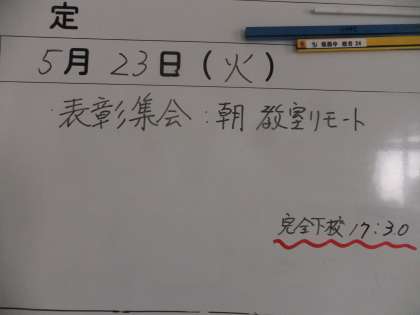 定
5月23日(火)
表彰集会:朝 教室リモート
完全下校 17:30